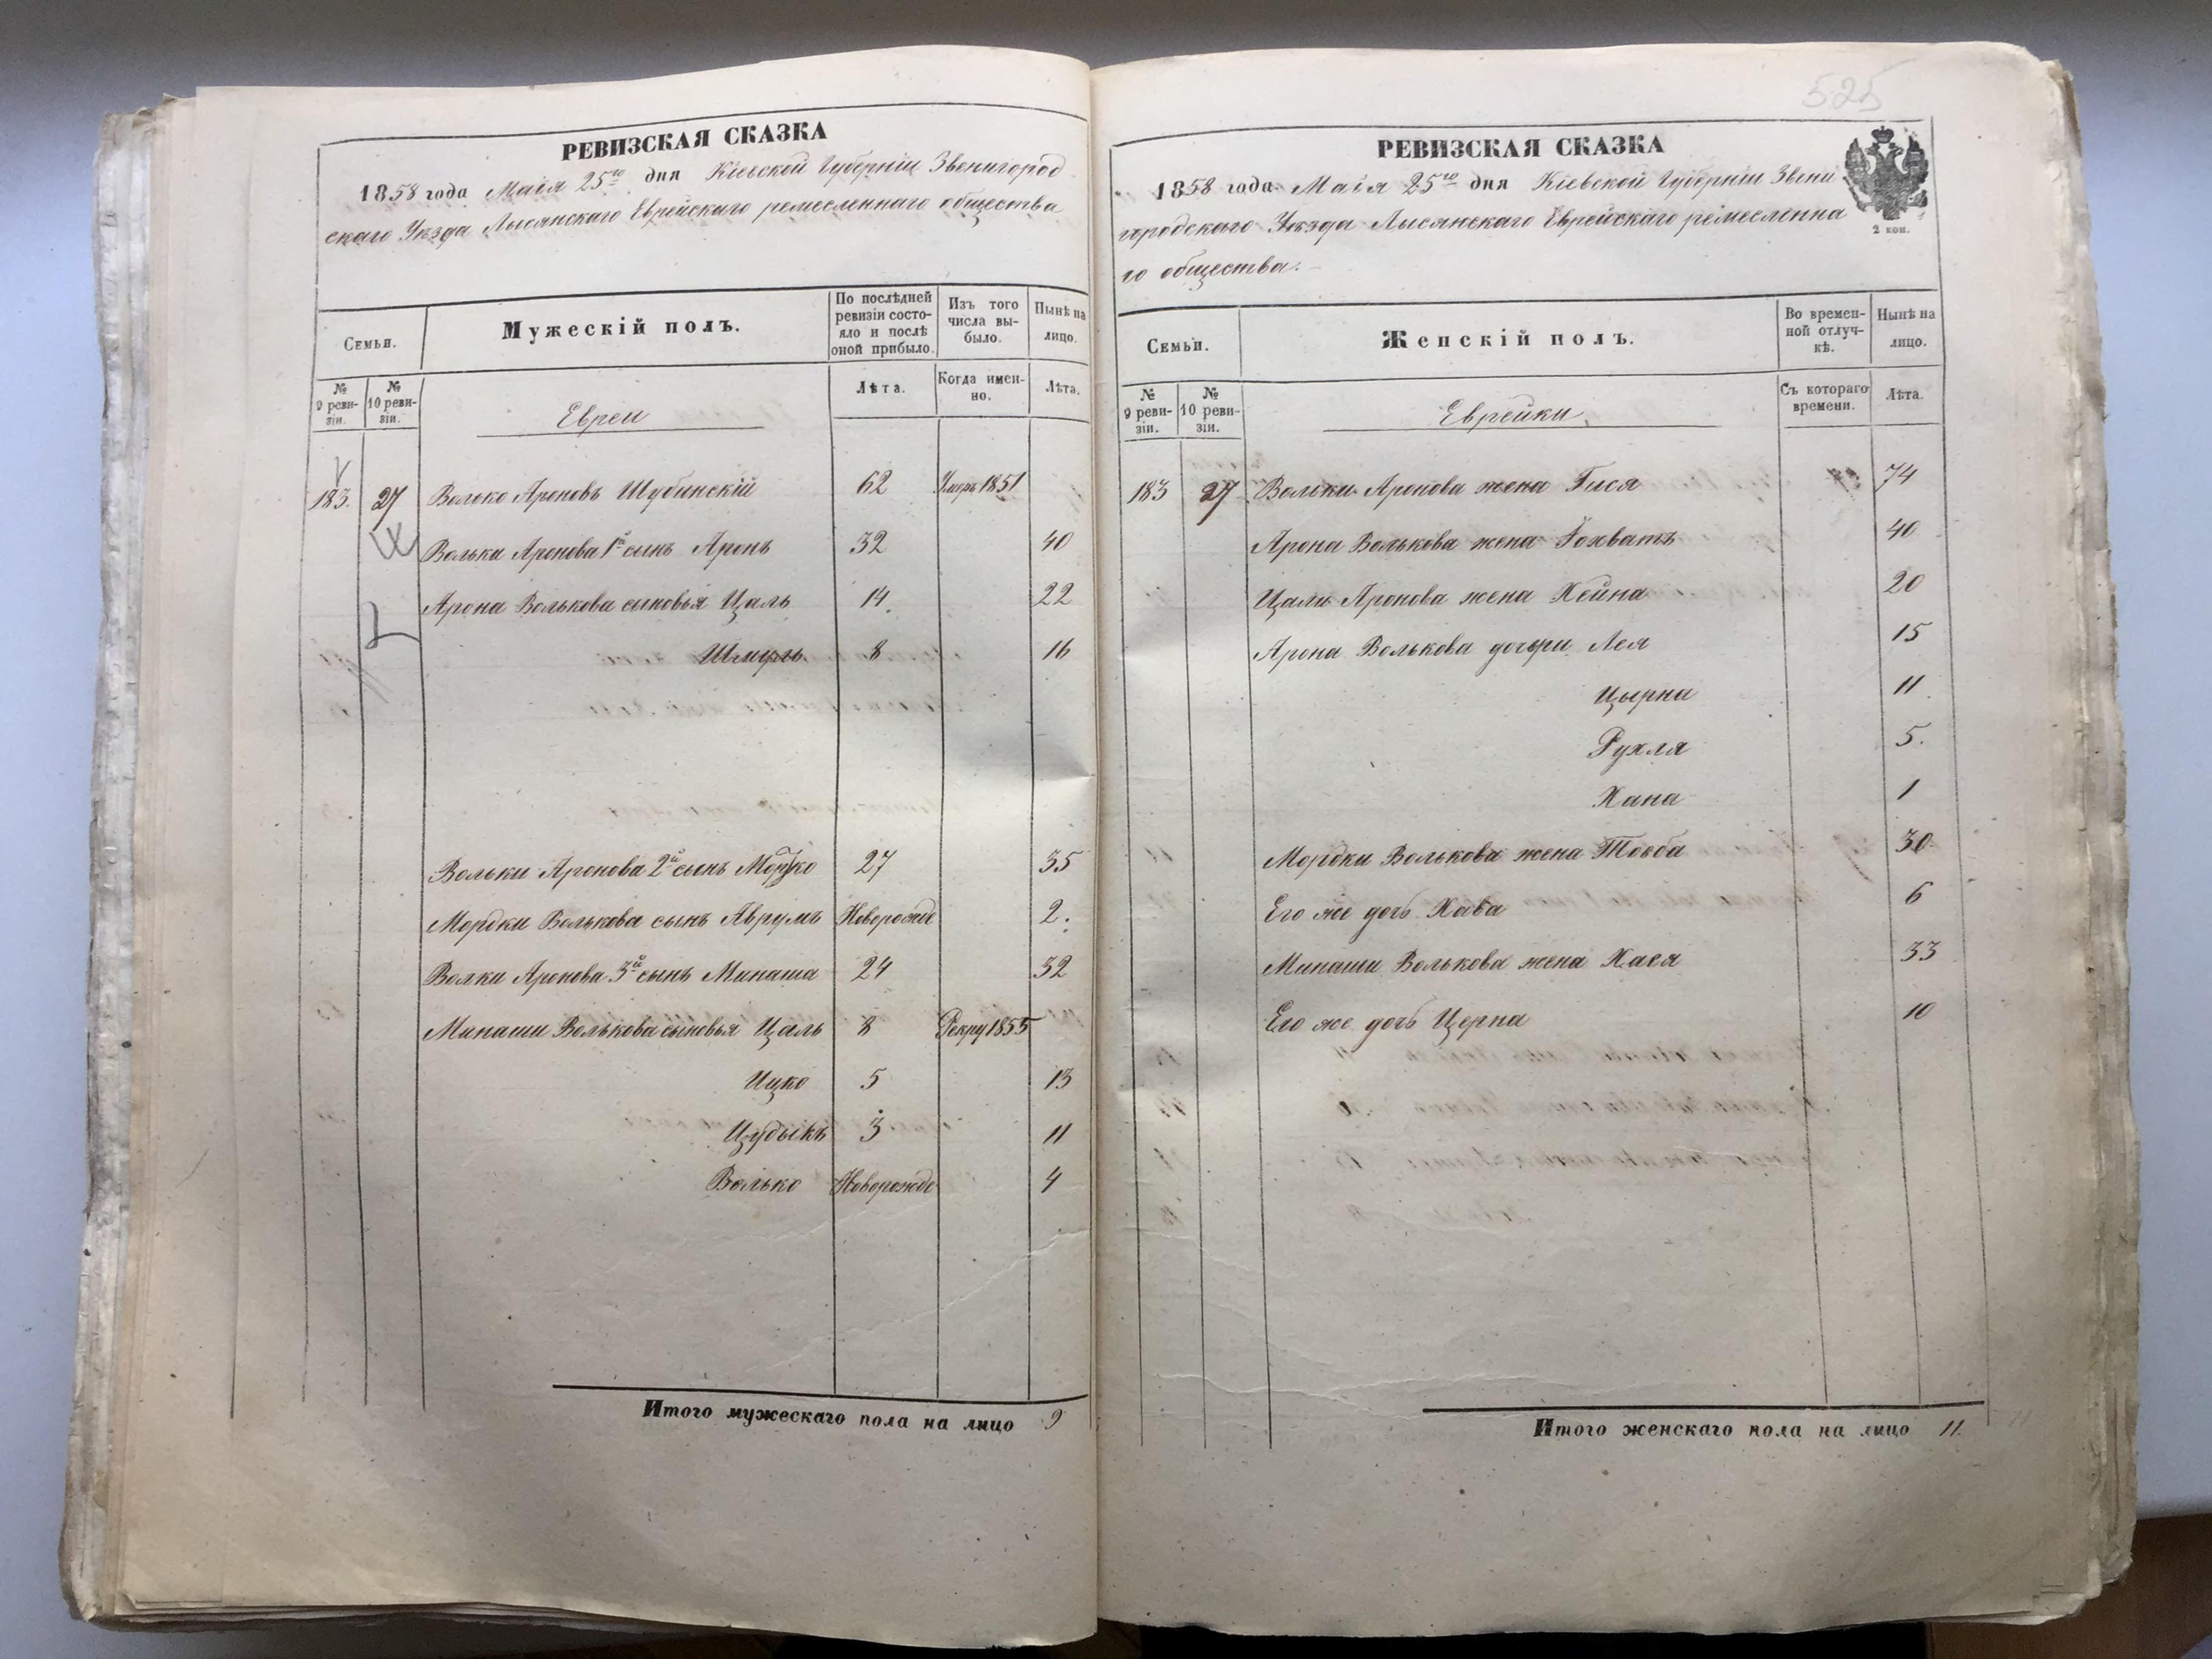 РЕВИЗСКАЯ СКАЗКА
1858 года Маія 25го дня Кіевской Губерніи Звенигород
скаго Уѣзда Лысянскаго Еврейскаго ремесленнаго общества
Семьи.
Мужескій полъ.
По послѣдней ревизіи состояло и послѣ оной прибыло.
Изъ того числа выбыло.
Нынѣ на лицо.
№ 9 ревизіи.
№ 10 ревизіи.
Евреи
Лѣта.
Когда именно.
Лѣта.
183. 27 Волько Ароновъ Шубинскій 62 Умеръ 1851
Вольки Аронова 1й сынъ Аронъ 32 40
Арона Волькова сыновья Цаль 14. 22
Шмуль 8 16
Вольки Аронова 2й сынъ Мордко 27 35
Мордки Волькова сынъ Аврумъ Новорожде 2.
Волки Аронова 3й сынъ Минаша 24 32
Минаши Волькова сыновья Цаль 8 Рекру 1855
Ицко 5 13
Цудыкъ 3 11
Волько Новорожде 4
Итого мужескаго пола на лицо 9
525
РЕВИЗСКАЯ СКАЗКА
1858 года Маія 25го дня Кіевской Губерніи Звени
городскаго Уѣзда Лысянскаго Еврейскаго ремесленна
го общества.
2 коп.
Семьи.
Женскій полъ.
Во временной отлучкѣ.
Нынѣ на лицо.
№ 9 ревизіи.
№ 10 ревизіи.
Еврейки
Съ котораго времени.
Лѣта.
183 27 Вольки Аронова жена Гися 74
Арона Волькова жена 40
Цали Аронова жена Хейна 20
Арона Волькова дочери Лея 15
Цырни 11.
Рухля 5.
Хана 1
Мордки Волькова жена Товба 30
Его же дочь Хава 6
Минаши Волькова жена Хася 33
Его же дочь Церна 10
Итого женскаго пола на лицо 11.